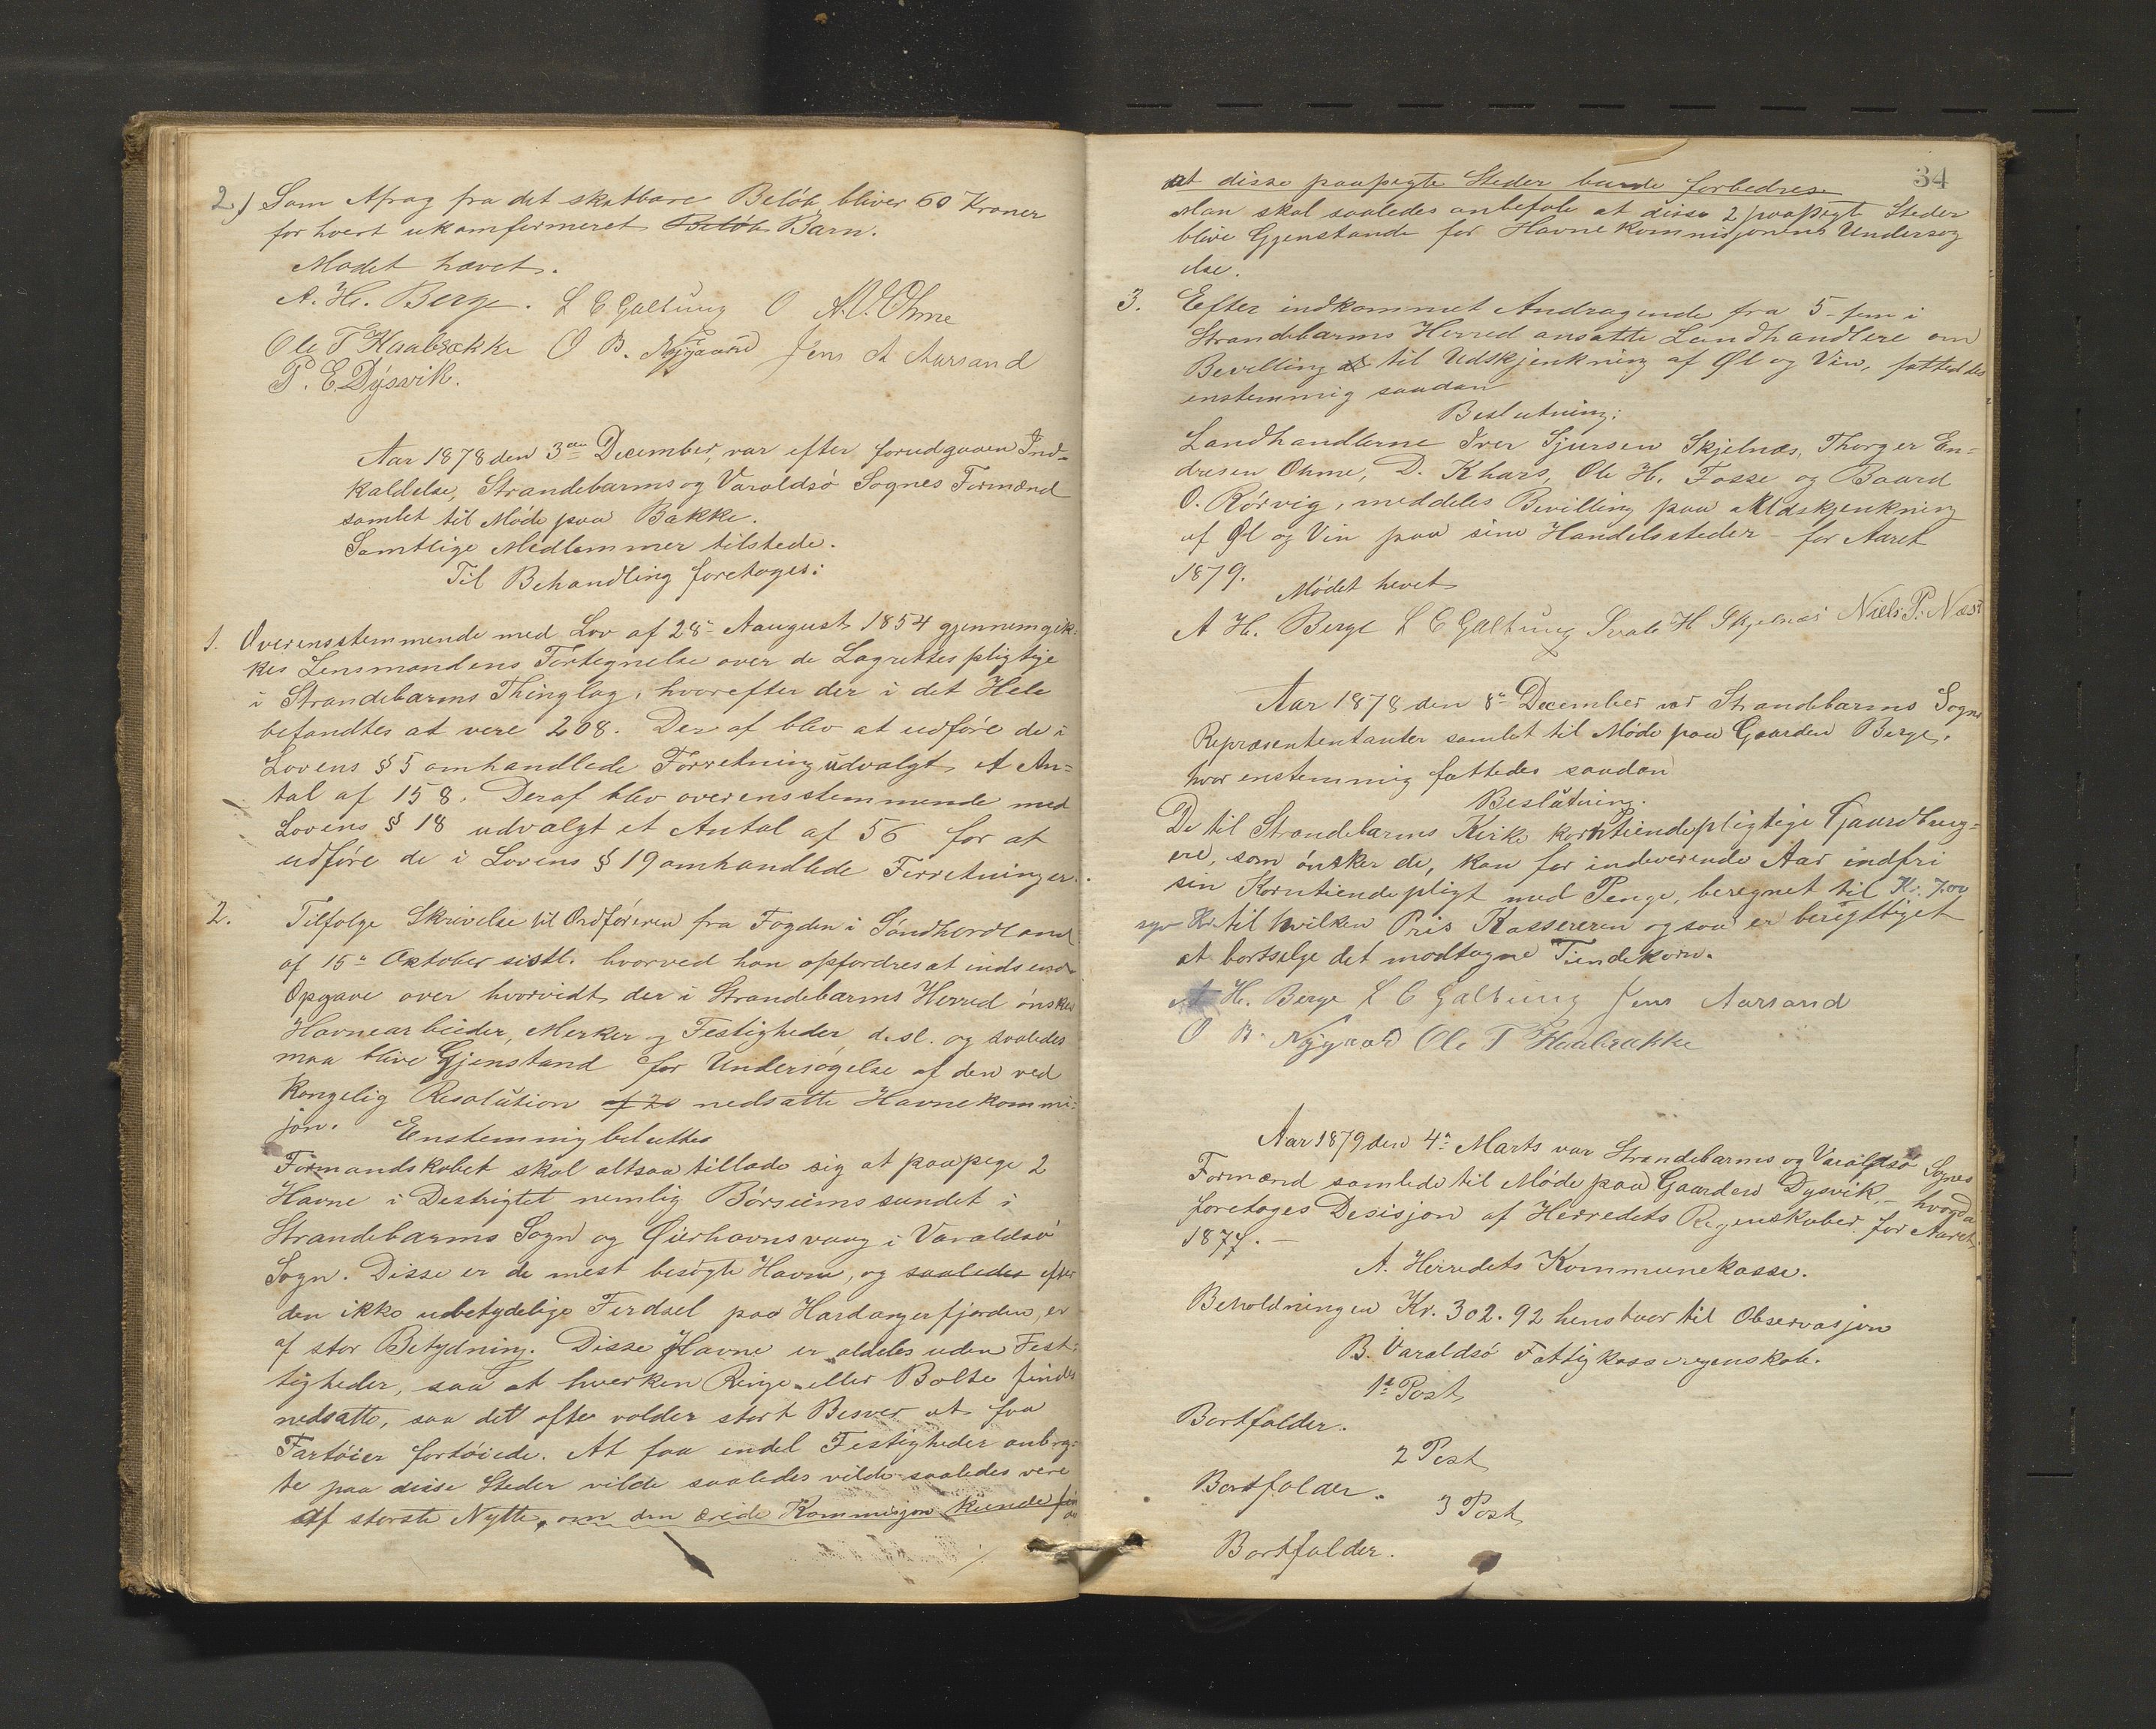 2) Som Afrag fra det skatbare Beløb bliver 60 Kroner
for hvert ukomfermeret Beløb Barn.
Modet hævet.
A. H. Berge. L E Galtung O A.O. Ohme
Ole T Haabrække O B. Nygaard Jens A Aarsand
P. E. Dysvik.
Aar 1878 den 3die December, var efter forudgaaen Ind-
kaldelse, Strandebarms og Varaldsø Sognes Formænd
samlet til Møde paa Bakke.
Samtlige Medlemmer tilstede.
Til Behandling foretoges:
1. Overensstemmende med Lov af 28de Aaugust 1854 gjennemgik=
kes Lensmandens Fortegnelse over de Lagrettespligtige
i Strandebarms Thinglag, hvorefter der i det Hele
befandtes at vere 208. Der af blev at udføre de i
Lovens § 5 omhandlede Forretning udvalgt et An=
tal af 158. Deraf blev overensstemmende med
Lovens § 18 udvalgt et Antal af 56 for at
udføre de i Lovens § 19 omhandlede Forretninger.
2. Tilfølge Skrivelse til Ordføreren fra Fogden i Søndhordland
af 15de Oktober sistl. hvorved han opfordres at indsende
Opgave over hvorvidt der i Strandebarms Herred ønskes
Havnearbeider, Merker og Festigheder, d. sl. og saaledes
maa blive Gjenstand for Undersøgelse af den ved
Kongelig Resolution af 20 nedsatte Havnekommi=
jon. Enstemmig beluttes
Formandskabet skal altsaa tillade sig at paapege 2
Havne i Destrigtet nemlig Børseimssundet i
Strandebarms Sogn og Øierhavnsvaag i Varaldsø
Sogn. Disse er de mest besøgte Havne, og saaledes efter
den ikke ubetydelige Ferdsel paa Hardangerfjorden, er
af stor Betydning. Disse Havne er aldeles uden Fest=
tigheder, saa at hverken Ringe eller Bolte findes
nedsatte, saa det ofte volder stort Besver at faa
Fartøier fortøiede. At faa endel Festigheder anbrag=
te paa disse Steder vilde saaledes vilde saaledes vere
af største Nytte, om den ærede Kommisjon kunde finde
34
at disse paapegte Steder burde forbedres
Man skal saaledes anbefale at disse 2 paapegte Steder
blive Gjenstande for Havnekommisjonens Undersøg
else.
3. Efter indkommet Andragende fra 5 - fem i
Strandebarms Herred ansatte Landhandlere om
Bevilling til Udskjenkning af Øl og Vin, fattedes
enstemmig saadan
Beslutning:
Landhandlerne Iver Sjursen Skjelnæs, Thorger En=
dresen Ohme, D. Khars, Ole H. Fosse og Baard
O. Rørvig, meddeles Bevilling paa Udskjenkning
af Øl og Vin paa sine Handelssteder - for Aaret
1879.
Mødet hevet
A H. Berge L E Galtung H Skjelnæs Niels P. Næss
Aar 1878 den 8de December var Strandebarms Sogns
Repræsententanter samlet til Møde paa Gaarden Berge,
hvor enstemmig fattedes saadan
Beslutning.
De til Strandebarms Kirke korntiendepligtige Gaardbrug=
ere, som ønsker de, kan for indeverende Aar indfri
sin Korntiendepligt med Penge, beregnet til Kr. 7.00
syv Kr. til hvilken Pris Kassereren ogsaa er berigttiget
at bortselge det modtagne Tiendekorn.
A H. Berge L E Galtung Jens Aarsand
O B. Nygaard Ole T Haabrække
Aar 1879 den 4de Marts var Strandebarms og Varaldsø Sognes
Formænd samlede til Møde paa Gaarden Dysvik, - hvorda
foretoges Desisjon af Herredets Regenskaber for Aaret
1877. -
A. Herredets Kommunekasse.
Beholdningen Kr. 302.92 henstaar til Observasjon
B. Varaldsø Fattigkasseregenskab.
1ste Post
Bortfalder.
2 Post
Bortfalder.
3 Post
Bortfalder.